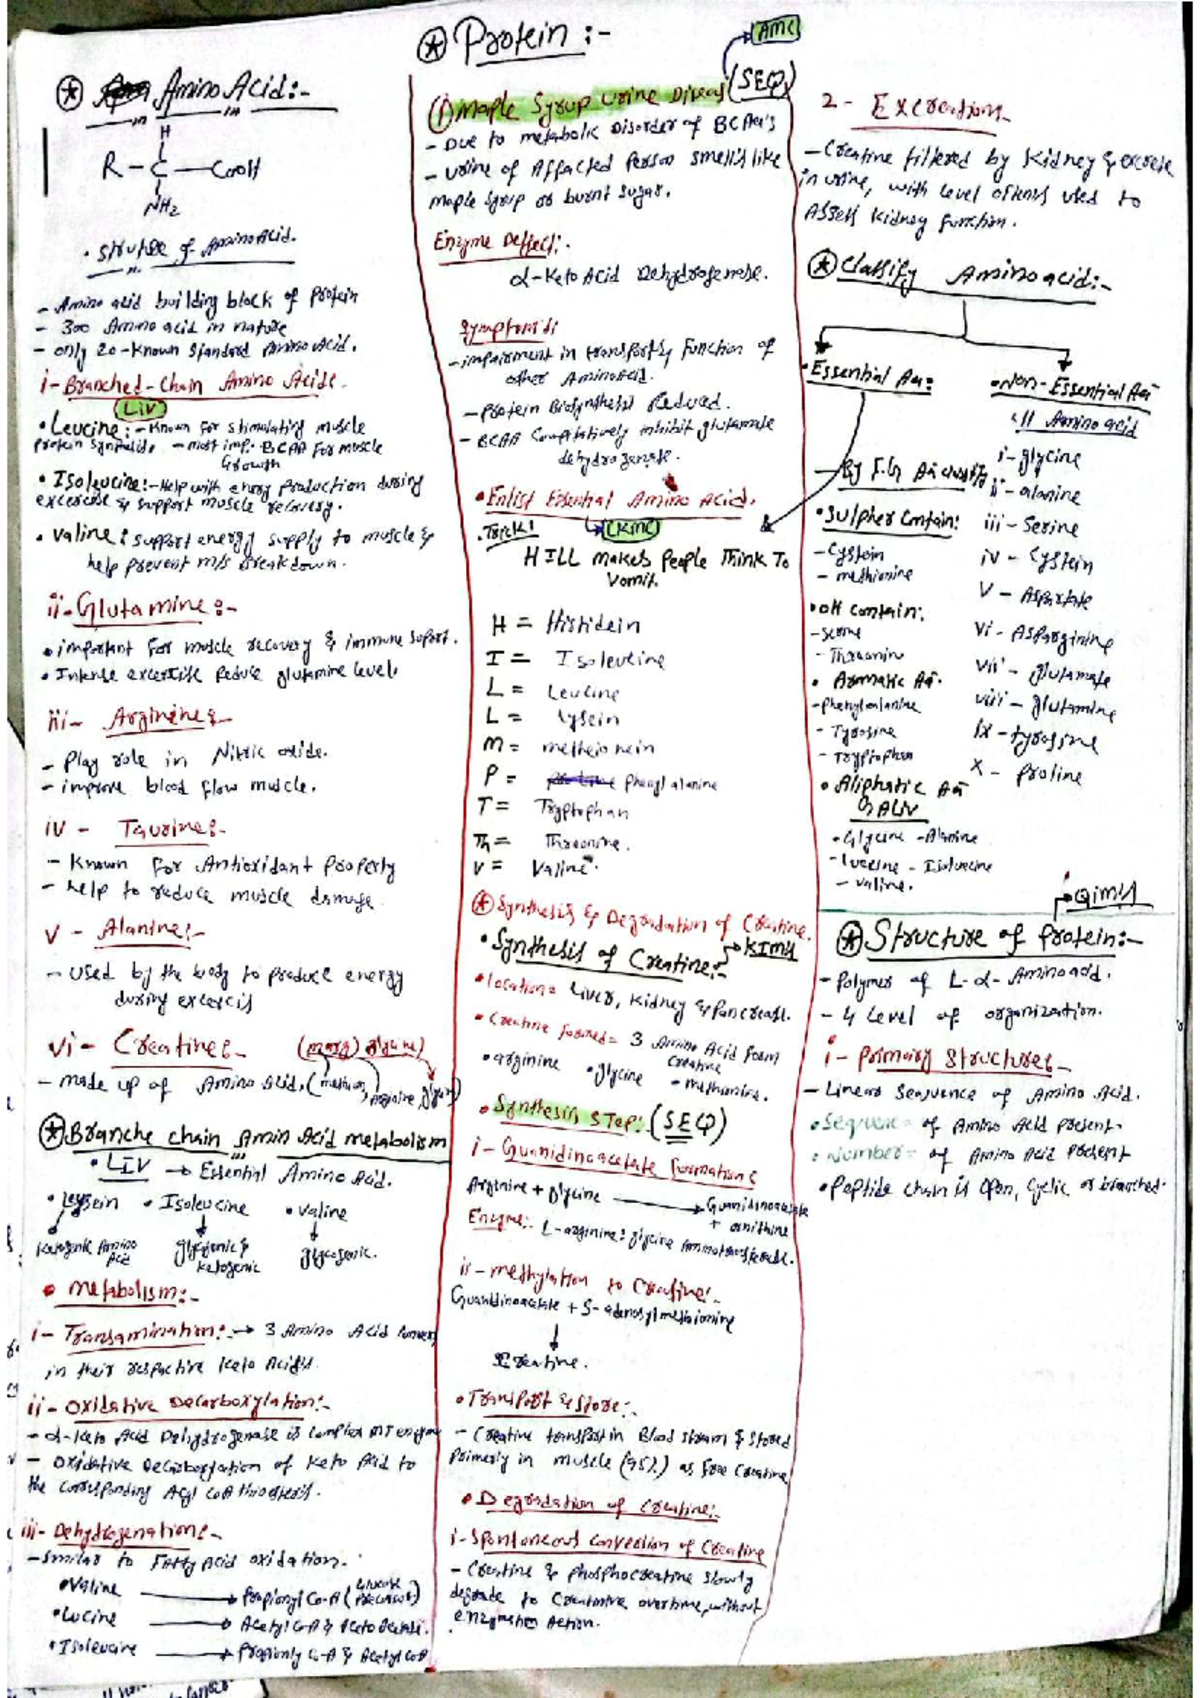 ⊛ Protein :-
AMC
⊛ Amino Acid:-
H
R - C - COOH
NH2
• Struture of Amino Acid.
- Amino acid building block of protein
- 300 Amino acid in nature
- only 20-Known Standard Amino Acid.
i- Branched-Chain Amino Acids.
LIV
• Leucine:- Known for stimulating muscle
protein synthesis. - most imp. BCAA for muscle
Growth
• Isoleucine:- Help with energy production during
excercise & support muscle recovery.
• valine: support energy supply to muscle &
help prevent m/s breakdown.
ii- Glutamine:-
• important for muscle recovery & immune suport.
• Intense excercise reduce glutamine level.
iii- Arginine:-
- Play role in Nitric oxide.
- improve blood flow muscle.
iv - Taurine:-
- Known for Antioxidant Property
- help to reduce muscle damage.
v - Alanine:-
- used by the body to produce energy
during excercis
vi- Creatine:-
- made up of Amino Acid. (methion, arginine, glycin)
⊛ Branche chain Amin Acid metabolism
• LIV → Essential Amino Acid.
• leysein • Isoleucine • valine
Ketogenic Amino Acid
glycogenic & ketogenic
glycogenic.
• Metabolism:-
i- Transamination:- → 3 Amino Acid convert
in their respective Keto Acids.
ii- Oxidative Decarboxylation:-
- α-Keto Acid Dehydrogenase is complex MT enzyme
- oxidative decarboxylation of Keto Acid to
the corresponding Acyl CoA thioesters.
iii- Dehydrogenation:-
- Similar to Fatty Acid oxidation.
• Valine → Propionyl CoA (Glucose Precursor)
• Lucine → Acetyl CoA & Aceto Acetate.
• Isoleucine → Propionly CoA & Acetyl CoA
① Maple Syrup urine Diseas (SEQ)
- Due to metabolic Disorder of BCAA's
- urine of Affacted Person smells like
maple syrup or burnt sugar.
Enzyme Deffect:-
α-Keto Acid Dehydrogenase.
Symptoms:
- impairment in transport & function of
other Aminoacid.
- protein Biosynthesis Reduced.
- BCAA Compitatively inhibit glutamate
dehydrogenase.
• Enlist Essential Amino Acid.
• Trick!
KMC
HILL makes People Think To
vomit.
H = Histidein
I = Isoleucine
L = Leucine
L = lysein
M = metheionein
P = phenylalanine
T = Tryptophan
Th = Threonine.
V = Valine.
⊛ Synthesis & Degradation of Creatine.
• Synthesis of Creatine:- KIMS
• location = Liver, Kidney & Pancrease.
• Creatine formed = 3 Amino Acid form
Creatine
• arginine • glycine • methionine.
• Synthesis Step: (SEQ)
i- Guanidinoacetate Formation:
Arginine + glycine → Guanidinoacetate
+ ornithine
Enzyme:- L-arginine: glycine Aminotransferase.
ii- methylation to Creatine:-
Guanidinoacetate + S-adenosylmethionine
Creatine.
• Transport & Store:-
- Creatine transport in Blood stream & stored
Primerly in muscle (95%) as free creatine
• Degradation of Creatine:-
i- Spontaneous convertion of Creatine
- Creatine & phosphocreatine slowly
degrade to creatinine overtime, without
enzymatic Action.
2 - Excreation
- Creatine filtered by Kidney & excrete
in urine, with level oftens used to
Assess Kidney function.
⊛ Classify Amino acid:-
• Essential Aa:
• Non-Essential Aa
11 Amino acid
i- glycine
ii- alanine
iii - Serine
iv - Cystein
V - Aspartate
vi - Asparginine
vii - glutamate
viii - glutamine
ix - tyrosine
X - Proline
- By F.G Aa classify
• Sulpher Contain:
- Cystein
- methionine
• OH Contain:
- serine
- Threonin
• Aromatic Aa-
- phenylalanine
- Tyrosine
- Tryptophan
• Aliphatic Aa
GALIV
• Glycine - Alanine
- Lucine - Isoleucine
- valine.
GIMS
⊛ Structure of Protein:-
- Polymer of L-α-Aminoacid.
- 4 level of organization.
i- Primary Structure:-
- Linear Sequence of Amino Acid.
• Sequence of Amino Acid present
• Number - of Amino Acid Present
• Peptide chain is open, cyclic or branched.